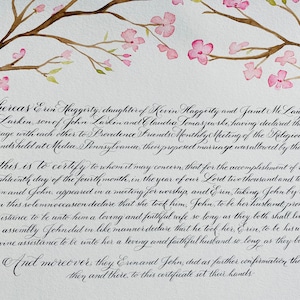 hereas Erin Haggerty, daughter of Kevin Haggerty and Janet Mc
Larkin, son of John Larkin and Claudia Tomaszewski, having declared th
age with each other to Providence Friends Monthly Meeting of the Religiou
nds held at Media, Pennsylvania, their proposed marriage was allowed by th
his is to certify to whom it may concern, that for the accomplishment of
teenth day of the fourth month, in the year of our Lord two thousand and
n and John, appeared in a meeting for worship, and Erin, taking John by
this solemn occasion declare that she took him, John, to be her husband, pro
sistance to be unto him a loving and faithful wife so long as they both shall liv
assembly John did in like manner declare that he took her, Erin, to be his
ine assistance to be unto her a loving and faithful husband so long as they b
And moreover, they Erin and John, did as further confirmation, th
then and there, to this certificate set their hands.